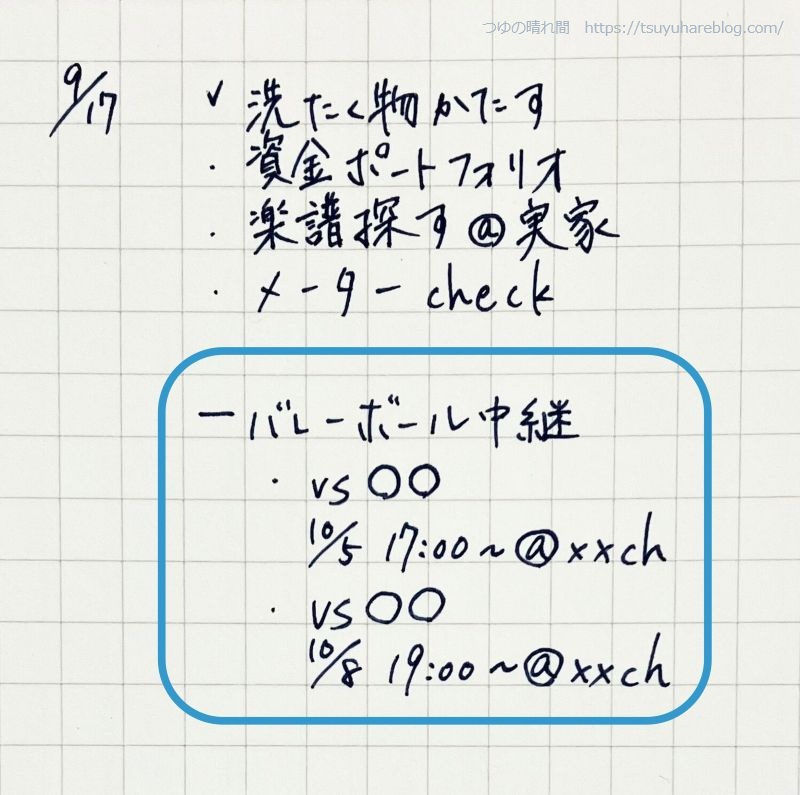 つゆの晴れ間 https://tsuyuhareblog.com/
9/17 ✓ 洗たく物かたす
・ 資金ポートフォリオ
・ 楽譜探す@実家
・ メーター check
ー バレーボール中継
・ vs 〇〇
10/5 17:00~@xxch
・ vs 〇〇
10/8 19:00~@xxch